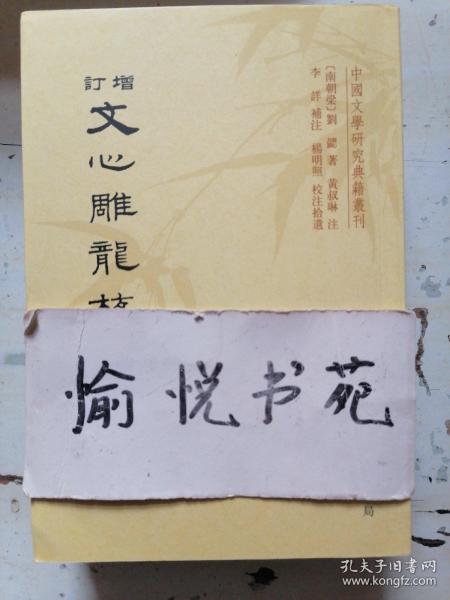 中國文學研究典籍叢刊
〔南朝梁〕劉勰 著 黃叔琳 注
李詳 補注 楊明照 校注拾遺
增訂
文心雕龍校
局
愉悦书苑
孔夫子旧书网
www.kongfz.com